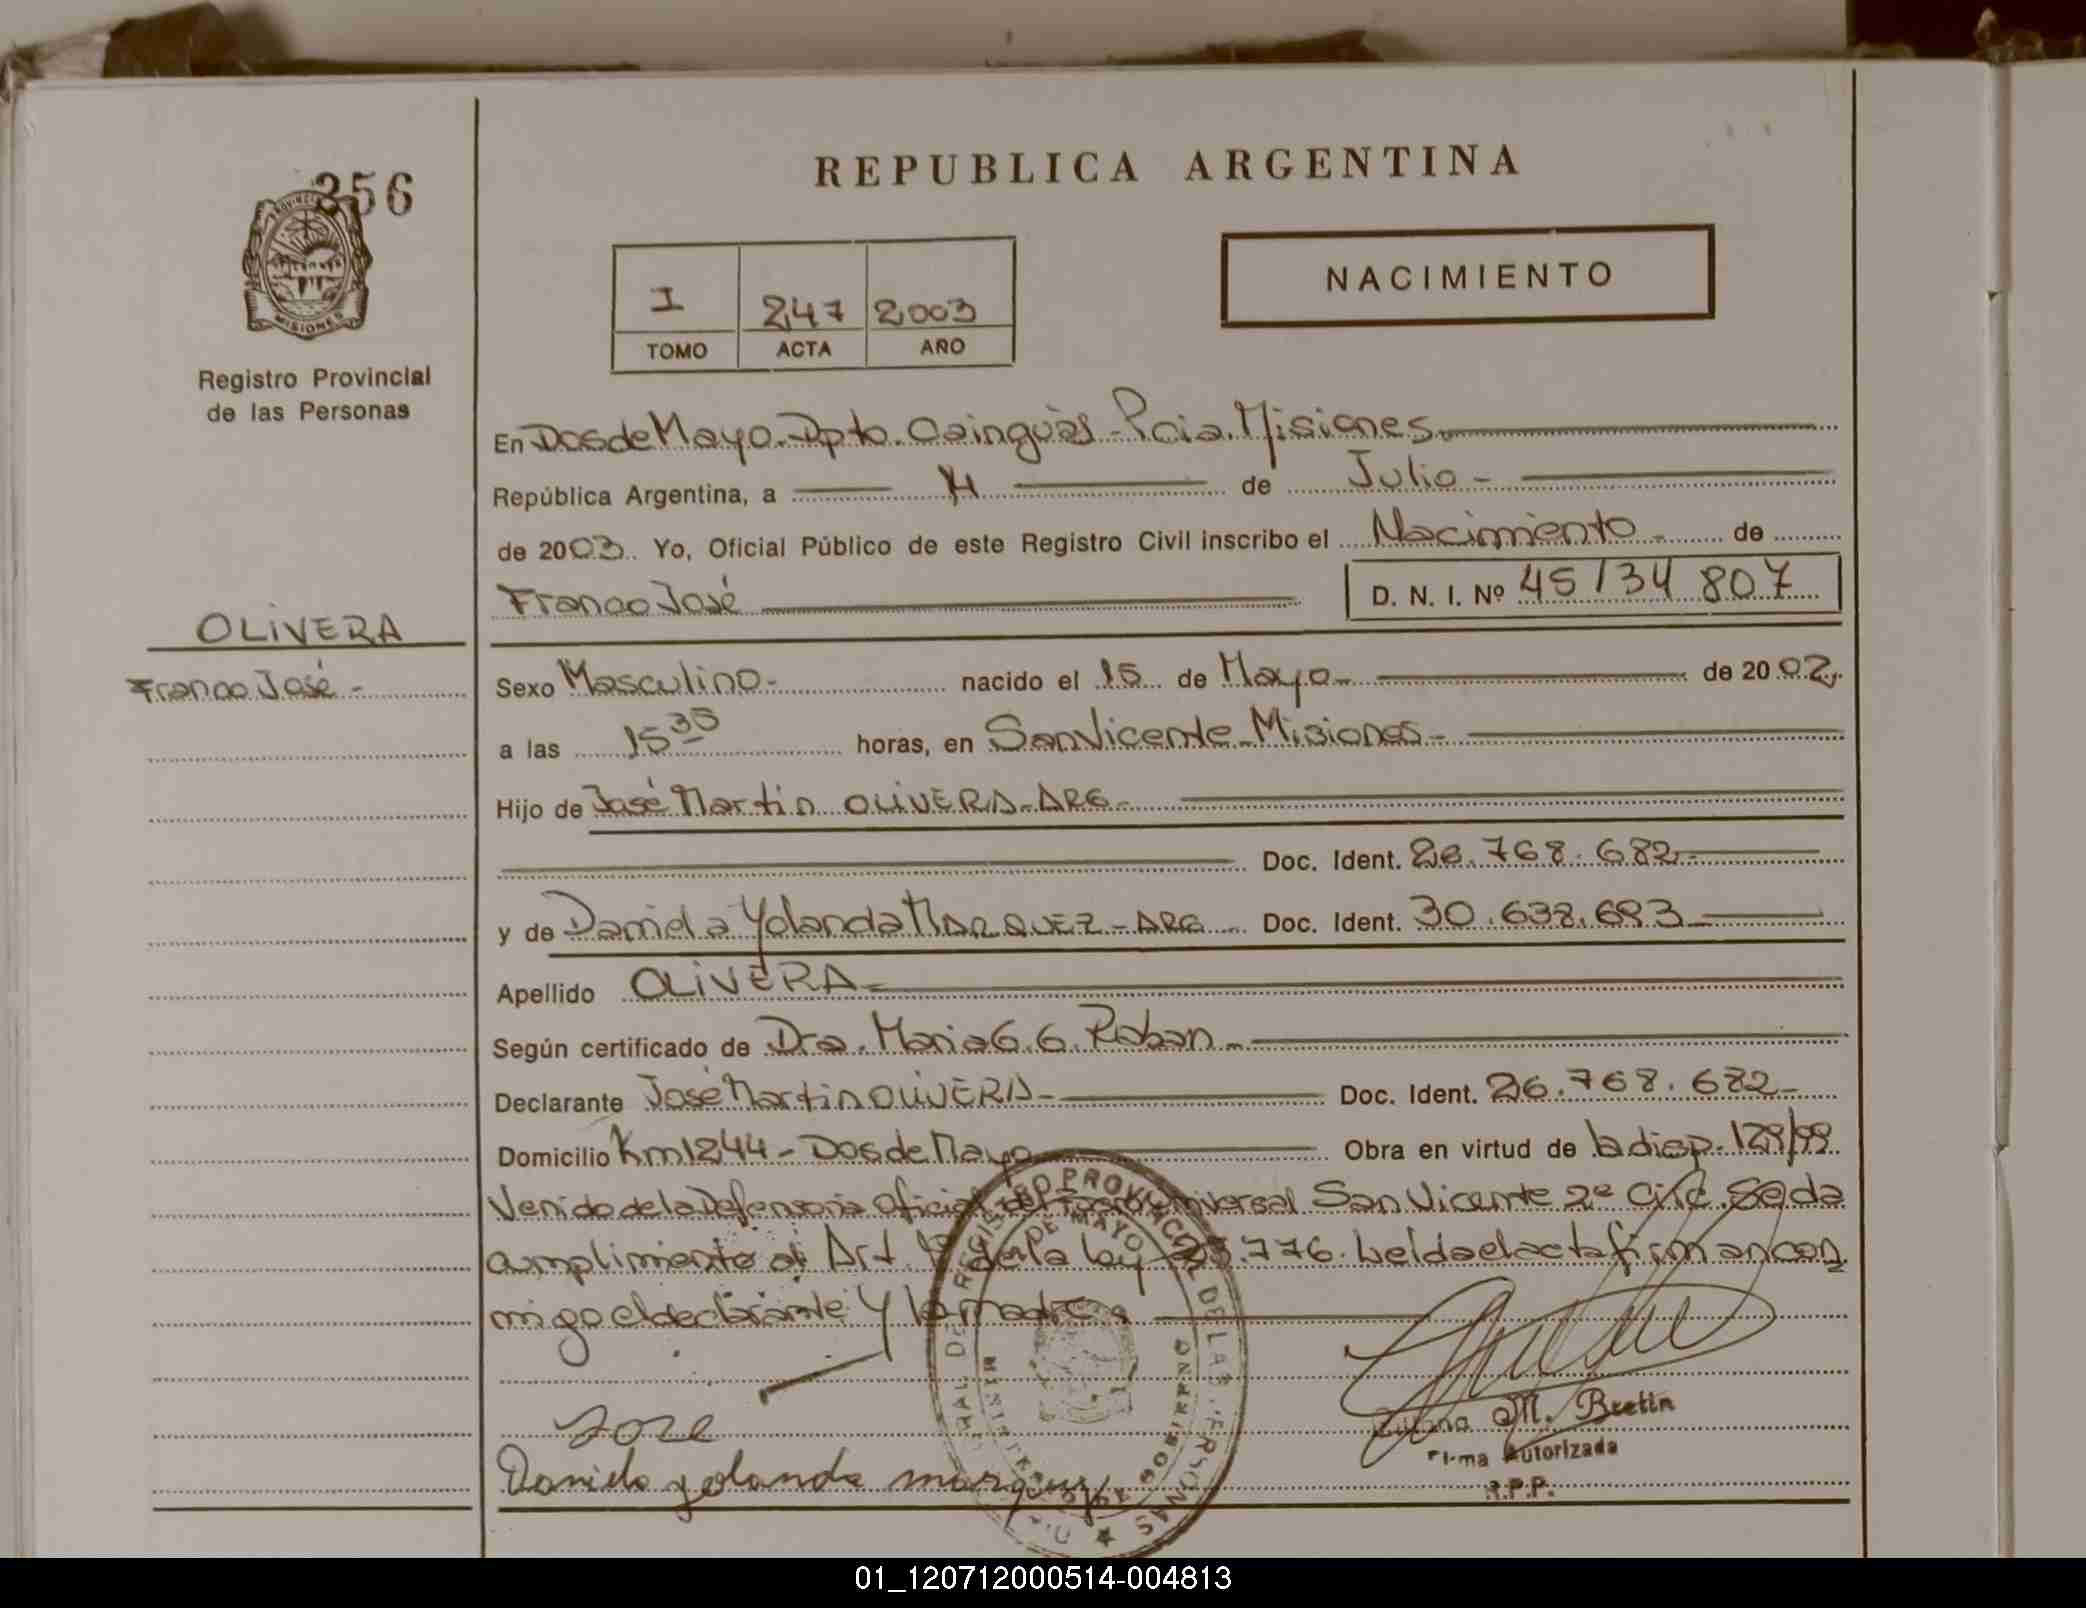 356
PROVINCIA
MISIONES
Registro Provincial
de las Personas
OLIVERA
Franco José -
REPUBLICA ARGENTINA
I 247 2003
TOMO ACTA AÑO
NACIMIENTO
En Dos de Mayo. Dpto. Cainguás - Pcia. Misiones.
República Argentina, a 4 de Julio -
de 2003. Yo, Oficial Público de este Registro Civil inscribo el Nacimiento - de
Franco José
D. N. I. Nº 45134 807
Sexo Masculino - nacido el 15 de Mayo - de 2002,
a las 15 35 horas, en San Vicente - Misiones -
Hijo de José Martin OLIVERA - ARG -
Doc. Ident. 26.768.682 -
y de Daniela Yolanda MARQUEZ - ARG Doc. Ident. 30.638.693
Apellido OLIVERA -
Según certificado de Dra. Maria G. G. Roban -
Declarante José Martin OLIVERA - Doc. Ident. 26.768.682 -
Domicilio Km 1244 - Dos de Mayo Obra en virtud de la disp. 129/99
Venido de la Defensoria Oficial de Fuero Universal San Vicente 2ª Circ. Se da
cumplimiento al Art. de la ley 25.776. Leida el acta firman con
migo el declarante y la madre.
Jose
Daniela yolanda marquez
REGISTRO PROVINCIAL DE LAS PERSONAS
DE MAYO
MINISTERIO DE GOBIERNO
M. Bretin
Firma Autorizada
R.P.P.
01_120712000514-004813